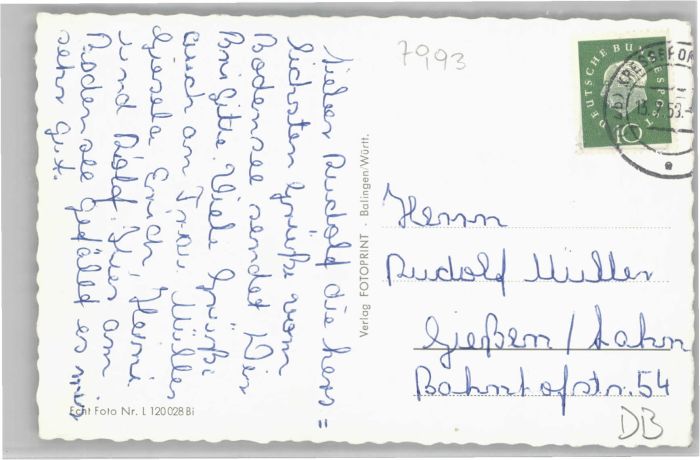 Lieber Rudolf die herz=
lichsten Grüße vom
Bodensee sendet Dir
Brigitte. Viele Grüße
auch an Frau Müller
Giesela Erich Heimi
und Rolf. Hier am
Bodensee gefällt es mir
sehr gut.
Echt Foto Nr. L 120028 Bi
Verlag FOTOPRINT · Balingen/Württ.
7993
DEUTSCHE BUNDESPOST
10
Herrn
Rudolf Müller
Gießen / Lahn
Bahnhofstr. 54
DB